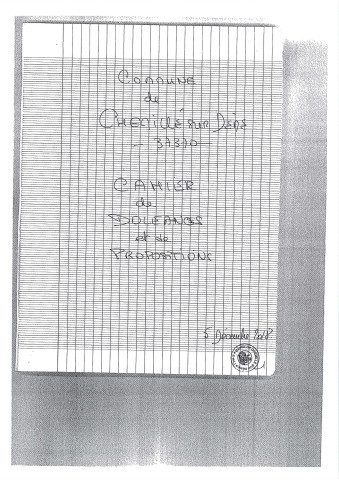 COMMUNE
de
CHEMILLÉ SUR DEME
- 37370
CAHIER
de
DOLEANCES
et de
PROPOSITIONS
5 Décembre 2018